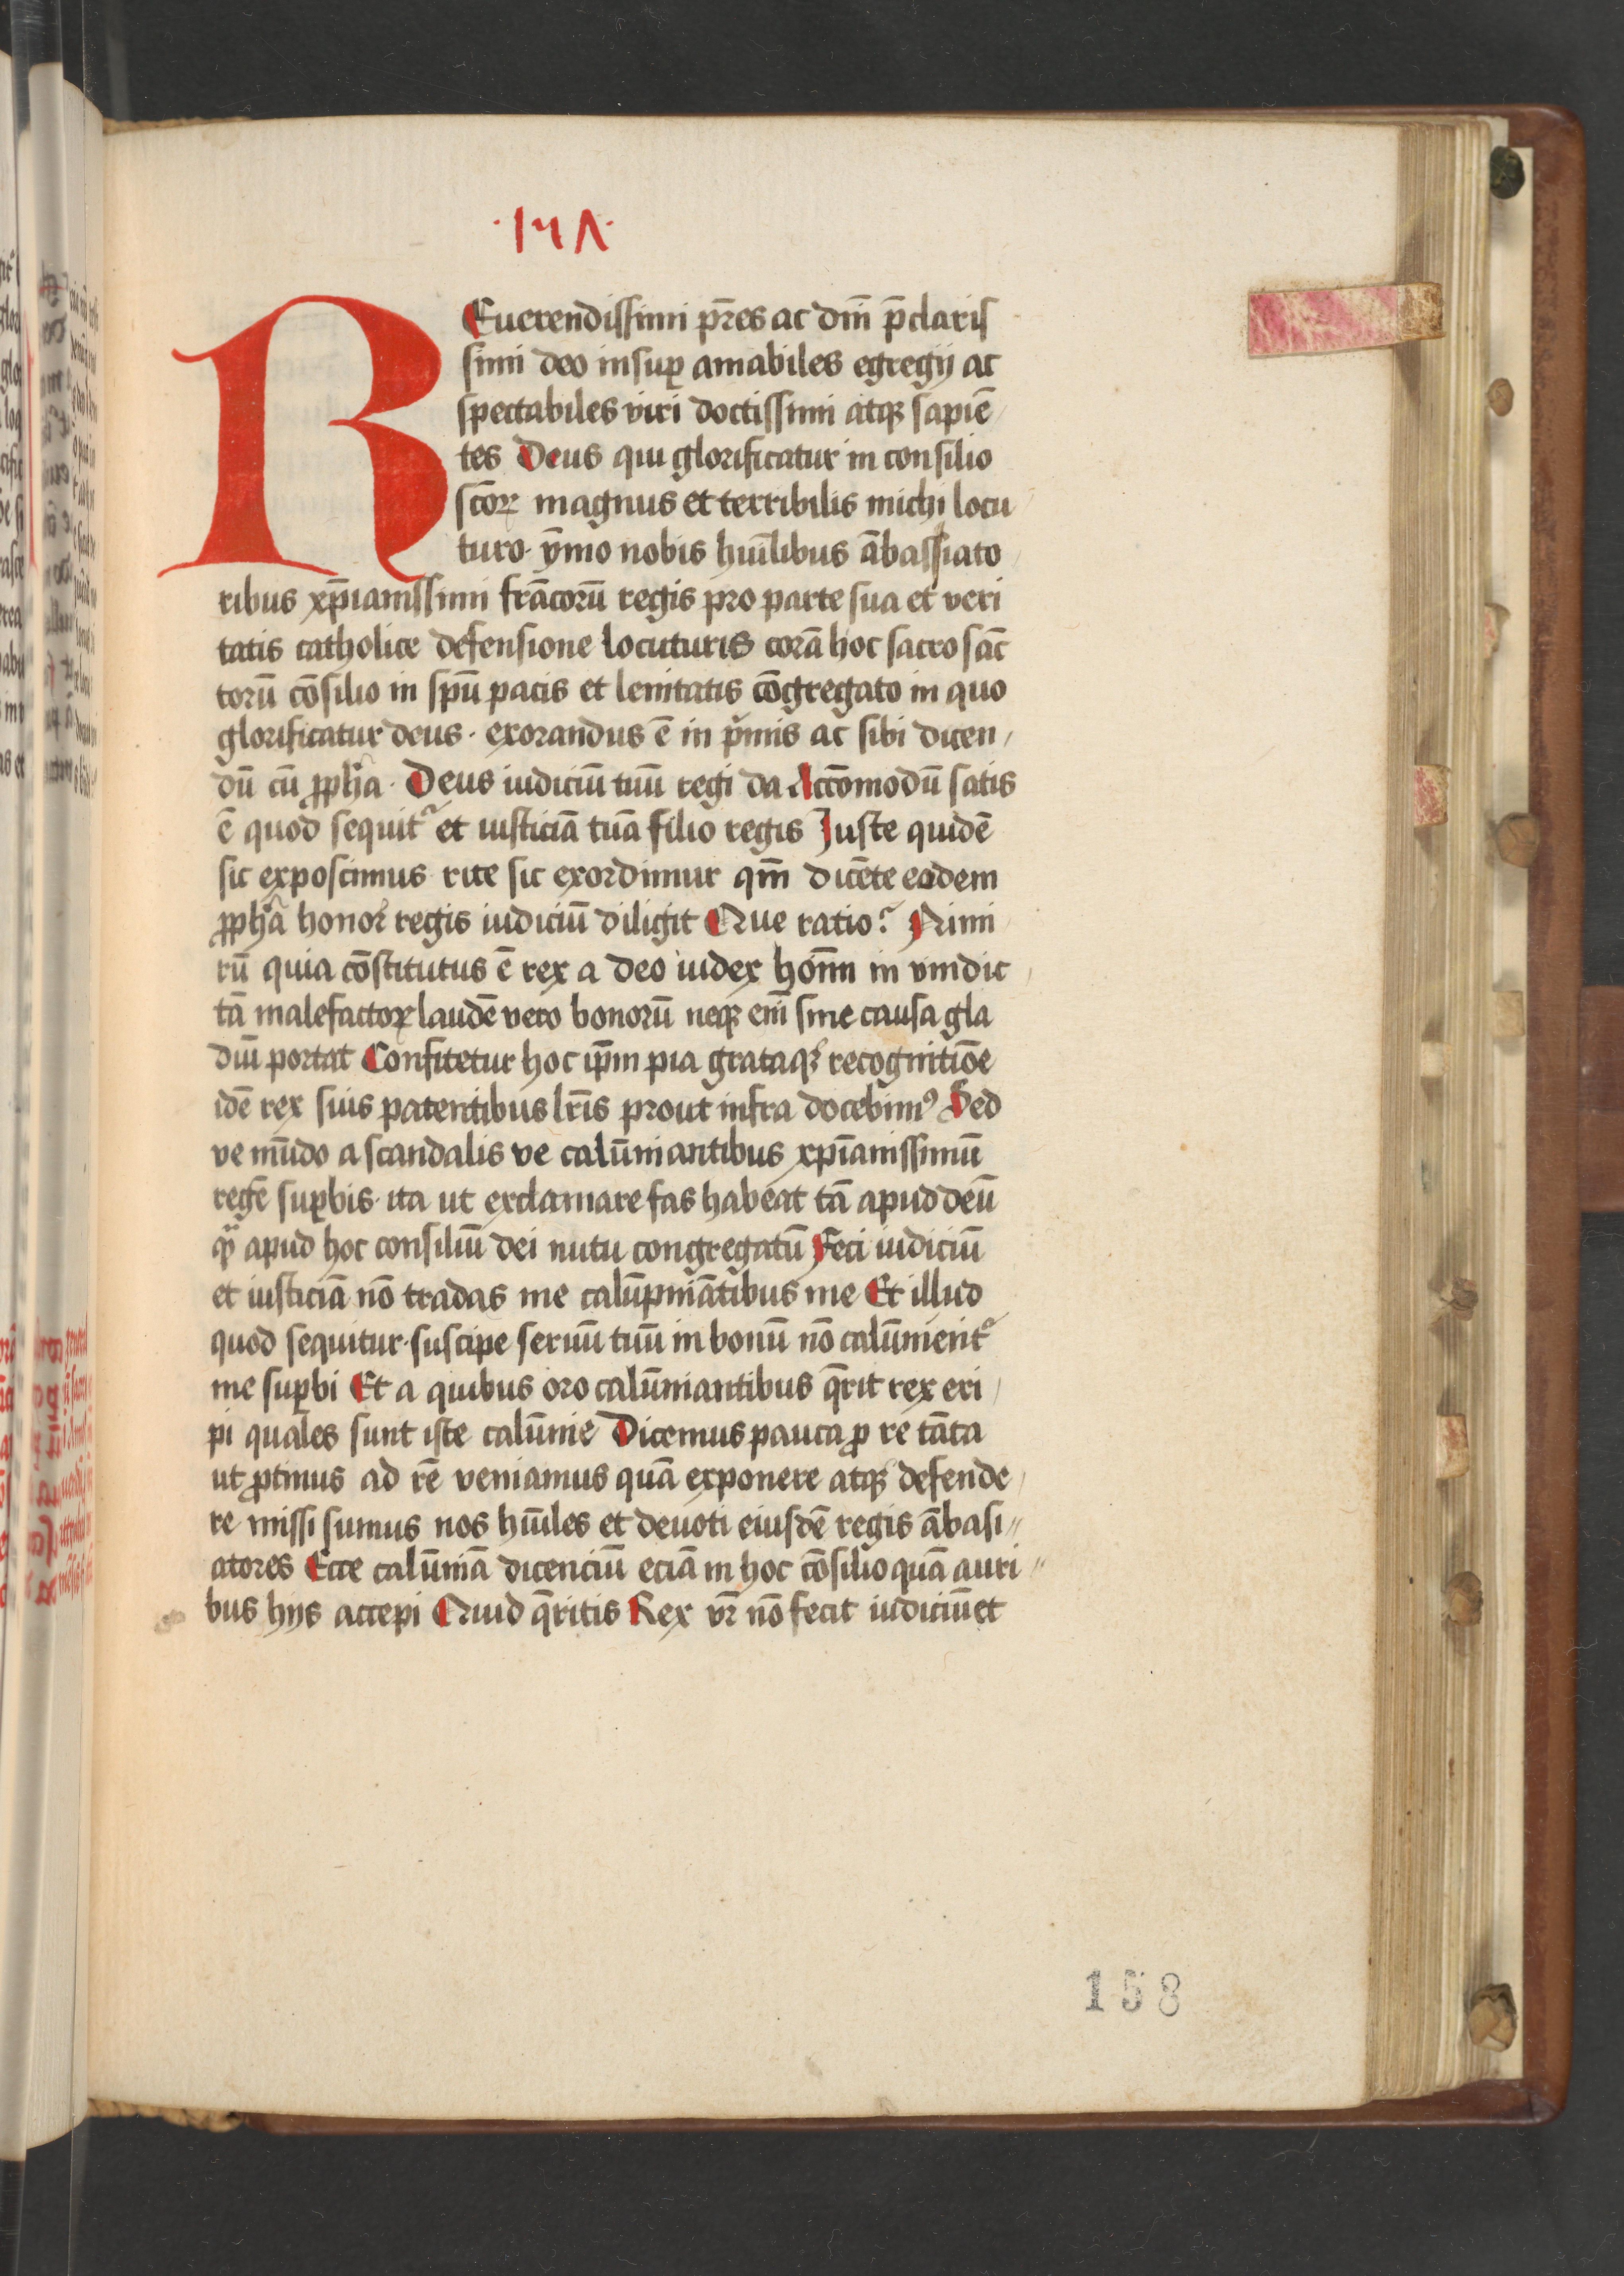 ·147·
REuerendissimi pr̄es ac dn̄i p̄claris
simi deo insuꝑ amabiles egregij ac
spectabiles viri doctissimi atqꝫ sapiē
tes Deus qui glorificatur in consilio
sc̄oꝝ magnus et terribilis michi locu
turo· ȳmo nobis huīlibus ābassiato
ribus xp̄ianissimi frācorū regis pro parte sua et veri
tatis catholice defensione locuturis corā hoc sacro sāc
torū cōsilio in sp̄u pacis et lenitatis cōgregato in quo
glorificatur deus · exorandus ē in pͥmis ac sibi dicen
dū cū ꝓph̄a · Deus iudiciū tuū regi da Accōmodū satis
ē quod sequit᷑ et iusticiā tuā filio regis Juste quidē
sic exposcimus rite sic exordimur qm̄ dicēte eodem
ꝓph̄a honor regis iudiciū diligit Que ratio? Nimi
rū quia cōstitutus ē rex a deo iudex hoīm in vindic
tā malefactoꝝ laudē vero bonorū neqꝫ em̄ sine causa gla
diū portat Confitetur hoc ip̄m pia grataqꝫ recognitiōe
idē rex suis patentibus lr̄is prout infra docebimꝰ Sed
ve mūdo a scandalis ve calūniantibus xp̄ianissimū
regē suꝑbis· ita ut exclamare fas habeat tā apud deū
qͣ apud hoc consiliū dei nutu congregatū Feci iudiciū
et iusticiā nō tradas me calūpniātibus me Et illud
quod sequitur· suscipe seruū tuū in bonū nō calūnient᷑
me suꝑbi Et a quibus oro calūniantibus q̄rit rex eri
pi quales sunt iste calūnie Dicemus pauca ꝓ re tāta
ut ꝓtinus ad rē veniamus quā exponere atqꝫ defende
re missi sumus nos huīles et deuoti eiusdē regis ābasi
atores Ecce calūniā dicenciū eciā in hoc cōsilio quā auri
bus hijs accepi Quid q̄ritis Rex vr̄ nō fecit iudiciū et
158